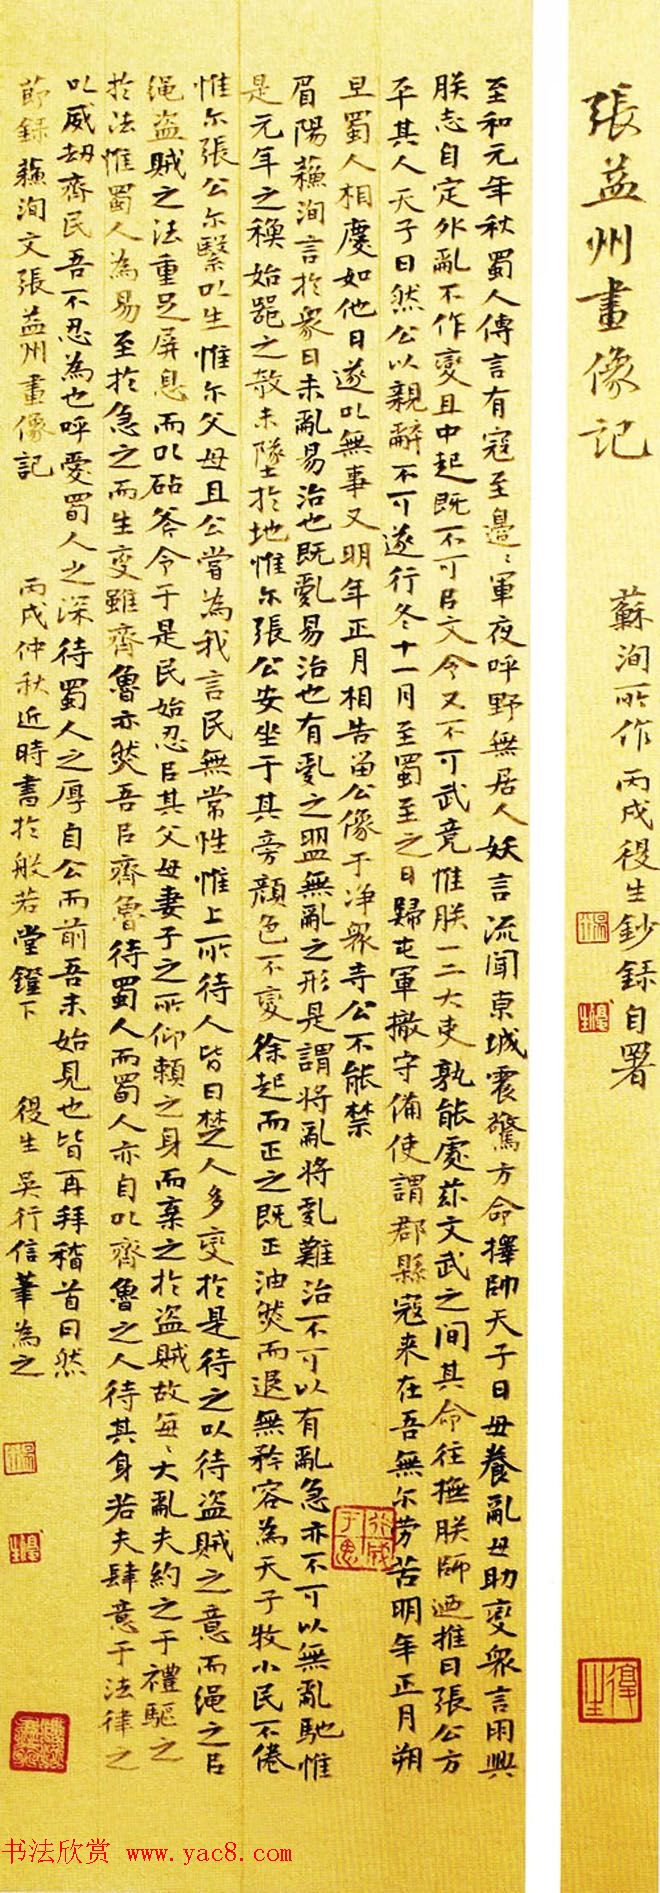 張益州畫像記
蘇洵所作 丙戌役生鈔錄自署
至和元年秋蜀人傳言有寇至邊〻軍夜呼野無居人妖言流聞京城震驚方命擇帥天子曰毋養亂毋助變衆言朋興
朕志自定外亂不作變且中起既不可㠯文令又不可武竟惟朕一二大吏孰能處茲文武之間其命往撫朕師迺推曰張公方
平其人天子曰然公以親辭不可遂行冬十一月至蜀至之日歸屯軍撤守備使謂郡縣寇来在吾無尔勞苦明年正月朔
旦蜀人相慶如他日遂㠯無事又明年正月相告畱公像于淨衆寺公不能禁
眉陽蘇洵言於衆曰未亂易治也既亂易治也有亂之萌無亂之形是謂將亂將亂難治不可以有亂急亦不可以無亂馳惟
是元年之秧始器之欹未墜於地惟尔張公安坐于其旁顔色不變徐起而正之既正油然而退無矜容為天子牧小民不倦
惟尔張公尔繄㠯生惟尔父母且公嘗為我言民無常性惟上所待人皆曰楚人多變於是待之以待盜賊之意而绳之㠯
绳盜賊之法重足屏息而㠯砧斧令于是民始忍㠯其父母妻子之所仰賴之身而棄之於盜賊故每〻大亂夫約之于禮驅之
於法惟蜀人為易至於急之而生变雖齊魯亦然吾㠯齊魯待蜀人而蜀人亦自㠯齊魯之人待其身若夫肆意于法律之
㠯威劫齊民吾不忍為也呼愛蜀人之深待蜀人之厚自公而前吾未始見也皆再拜稽首曰然
節録蘇洵文張益州畫像記 丙戌仲秋近時書於般若堂鐙下 役生吳行信筆為之
书法欣赏 www.yac8.com